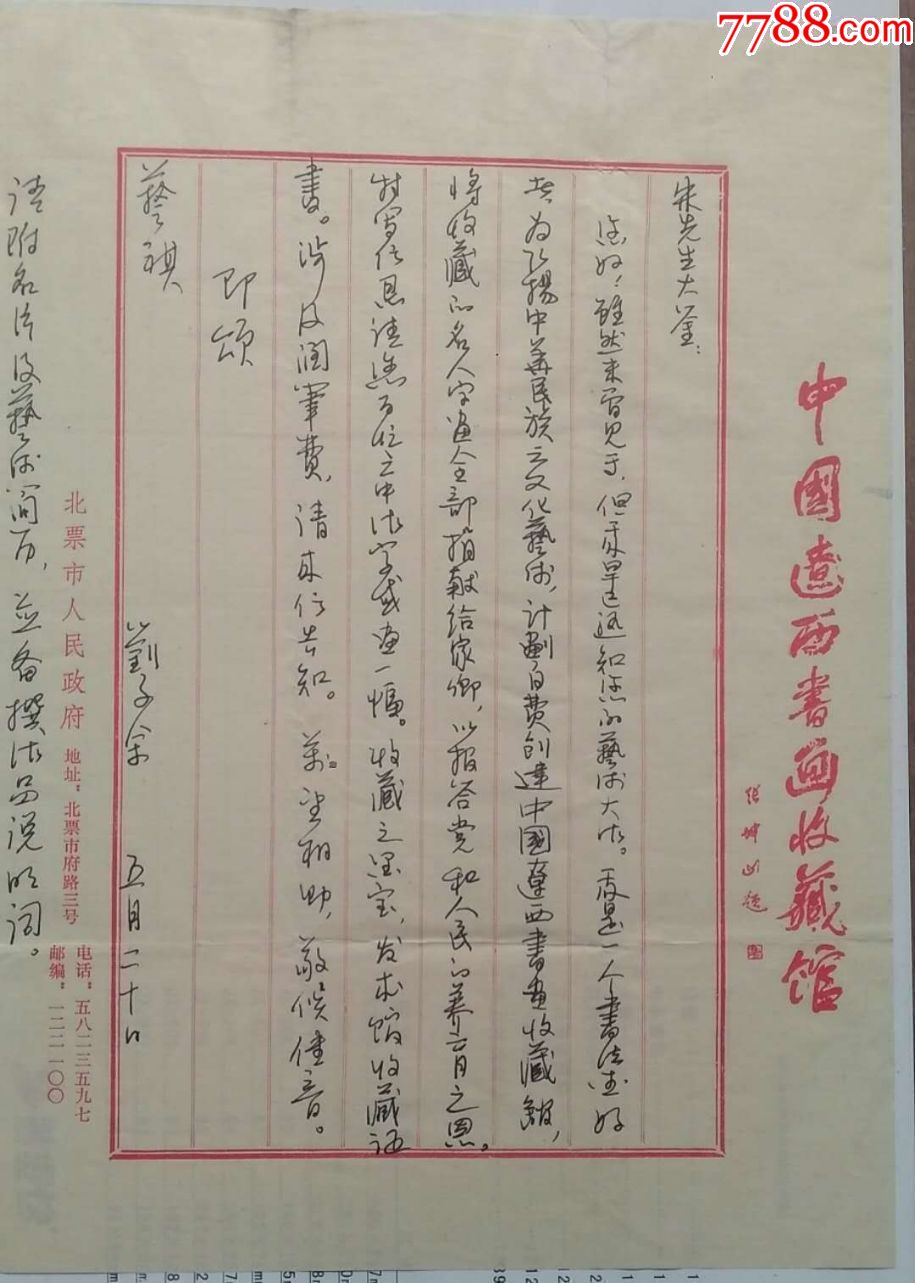 7788.com
中國遼西書画收藏馆
朱先生大鉴:
您好!虽然未曾见于,但我早已迅知您的藝术大名。我是一个書法爱好
者,为弘揚中華民族之文化藝術,计劃自费创建中國遼西書画收藏館,
将收藏的名人字画全部捐献给家乡,以报答党和人民的养育之恩。
特写信恩请您百忙之中法字或画一幅。收藏之宝,发本馆收藏证
書。涉及润筆費,请来信告知。萬望相助,敬候佳音。
即颂
藝祺
劉
五月二十日
北票市人民政府 地址:北票市府路三号
电话:五八二三五九七
邮编:一二二一〇〇
请附名片及藝术简历,並备撰作品说明词。